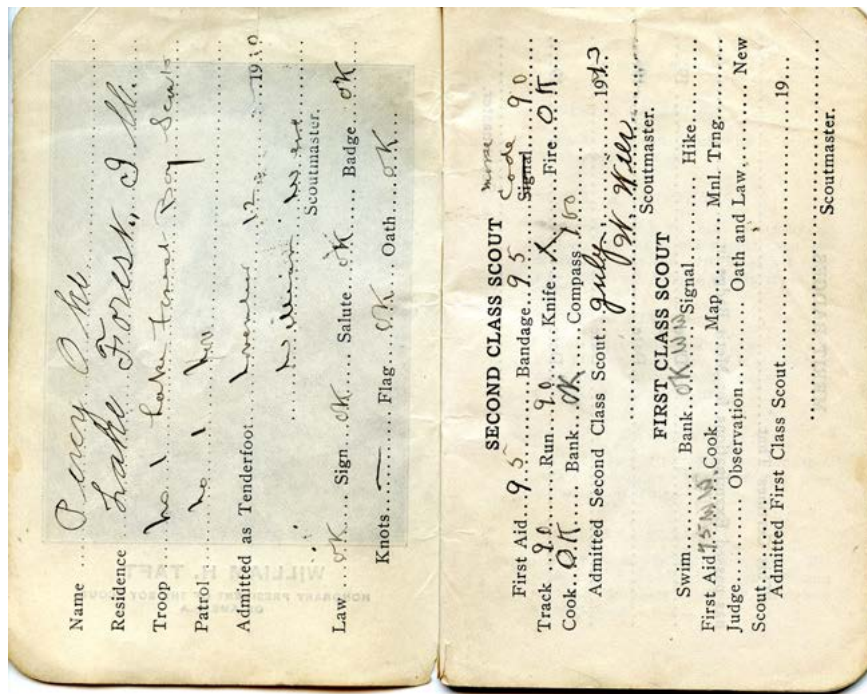 Name Percy
Residence Lake Forest, Ill.
Troop No 1 Lake Forest Boy Scouts
Patrol No 1
Admitted as Tenderfoot November 12 1910
William
Scoutmaster.
Law OK Sign OK Salute OK Badge OK
Knots — Flag OK Oath OK
WILLIAM H. TAFT
HONORARY PRESIDENT OF THE BOY SCOUTS
OF AMERICA
SECOND CLASS SCOUT
Morse
First Aid 95 Bandage 95 Signal Code 90
Track 90 Run 90 Knife X Fire OK
Cook OK Bank OK Compass 100
Admitted Second Class Scout July 19
W.
Scoutmaster.
FIRST CLASS SCOUT
Swim Bank OK Signal Hike
First Aid 95 Cook Map Mnl. Trng.
Judge Observation Oath and Law, New
Scout
Admitted First Class Scout 19
Scoutmaster.